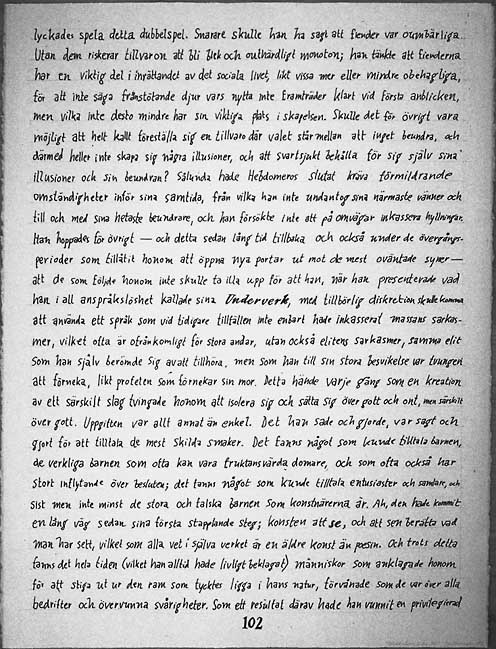 lyckades spela detta dubbelspel. Snarare skulle han ha sagt att fiender var oumbärliga.
Utan dem riskerar tillvaron att bli blek och outhärdligt monoton; han tänkte att fienderna
har en viktig del i inrättandet av det sociala livet, likt vissa mer eller mindre obehagliga,
för att inte säga frånstötande djur vars nytta inte framträder klart vid första anblicken,
men vilka inte desto mindre har sin viktiga plats i skapelsen. Skulle det för övrigt vara
möjligt att helt kallt föreställa sig en tillvaro där valet står mellan att inget beundra, och
därmed heller inte skapa sig några illusioner, och att svartsjukt behålla för sig själv sina
illusioner och sin beundran? Sålunda hade Hebdomeros slutat kräva förmildrande
omständigheter inför sina samtida, från vilka han inte undantog sina närmaste vänner och
till och med sina hetaste beundrare, och han försökte inte att på omvägar inkassera hyllningar.
Han hoppades för övrigt — och detta sedan lång tid tillbaka och också under de övergångs-
perioder som tillåtit honom att öppna nya portar ut mot de mest oväntade syner —
att de som följde honom inte skulle ta illa upp för att han, när han presenterade vad
han i all anspråkslöshet kallade sina Underverk, med tillbörlig diskretion skulle komma
att använda ett språk som vid tidigare tillfällen inte enbart hade inkasserat massans sarkas-
mer, vilket ofta är ofrånkomligt för stora andar, utan också elitens sarkasmer, samma elit
som han själv berömde sig av att tillhöra, men som han till sin stora besvikelse var tvungen
att förneka, likt profeten som förnekar sin mor. Detta hände varje gång som en kreation
av ett särskilt slag tvingade honom att isolera sig och sätta sig över gott och ont, men särskilt
över gott. Uppgiften var allt annat än enkel. Det han sade och gjorde, var sagt och
gjort för att tilltala de mest skilda smaker. Det fanns något som kunde tilltala barnen,
de verkliga barnen som ofta kan vara fruktansvärda domare, och som ofta också har
stort inflytande över besluten; det fanns något som kunde tilltala entusiaster och samlare, och
sist men inte minst de stora och falska barnen som konstnärerna är. Ah, den hade kommit
en lång väg sedan sina första stapplande steg; konsten att se, och att sen berätta vad
man har sett, vilket som alla vet i själva verket är en äldre konst än poesin. Och trots detta
fanns det hela tiden (vilket han alltid hade livligt beklagat) människor som anklagade honom
för att stiga ut ur den ram som tycktes ligga i hans natur, förvånade som de var över alla
bedrifter och övervunna svårigheter. Som ett resultat därav hade han vunnit en privilegierad
102